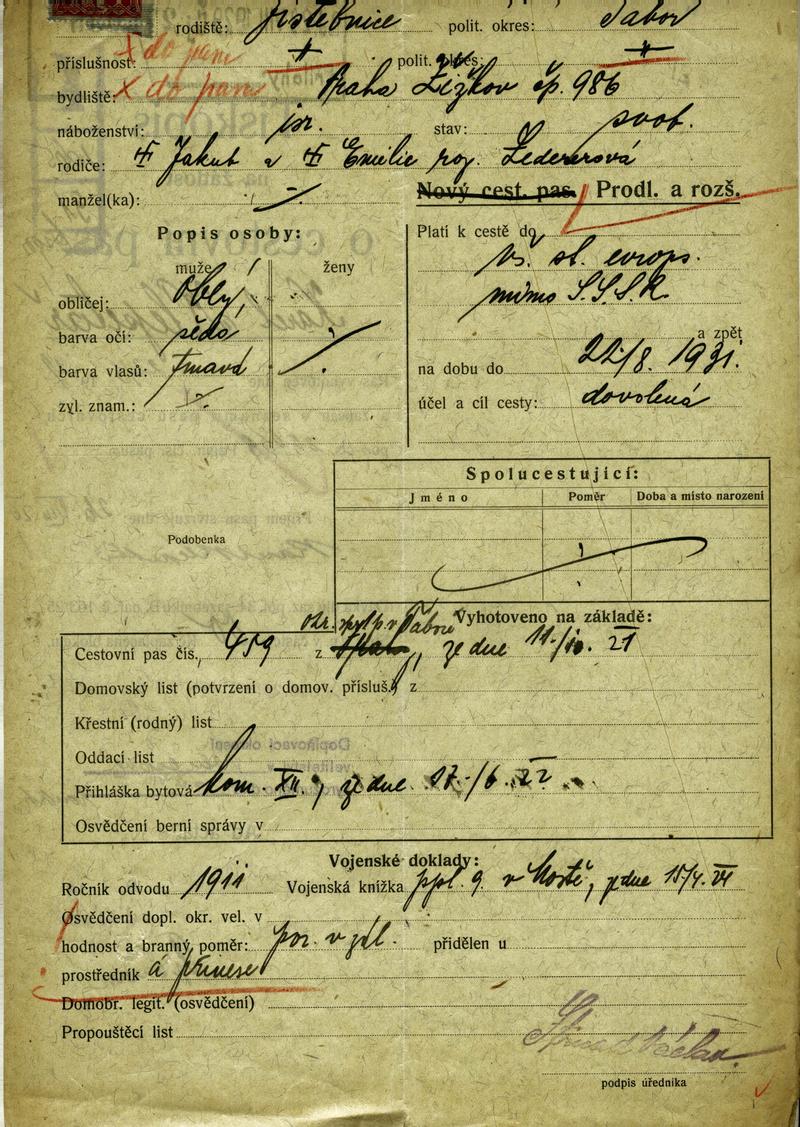 rodiště: Jistebnice polit. okres: Tábor
příslušnost: x do pam polit. okres:
bydliště: x do pam Praha Žižkov čp. 986
náboženství: isr. stav: svob.
rodiče: Jakub a Emilie roz. Ledererová
manžel(ka):
Nový cest. pas. Prodl. a rozš.
Popis osoby:
muže ženy
obličej: oblý,
barva očí: šedo
barva vlasů: tmavá
zvl. znam.:
Platí k cestě do
vš. st. evrops.
mimo S.S.S.R.
a zpět
na dobu do 22/8. 1931.
účel a cíl cesty: dovolená
Spolucestující:
Jméno Poměr Doba a místo narození
Podobenka
Vyhotoveno na základě:
Cestovní pas čís. 459 z Táboru, ze dne 11./10. 21
Domovský list (potvrzení o domov. přísluš.) z
Křestní (rodný) list
Oddací list
Přihláška bytová kom. XII., ze dne 17./6. 22
Osvědčení berní správy v
Vojenské doklady:
Ročník odvodu 1911 Vojenská knížka ppl. 9. v Mostě, ze dne 15/4. 21
Osvědčení dopl. okr. vel. v
hodnost a branný poměr: por. v zál. přidělen u
prostředník á přinese
Domobr. legit. (osvědčení)
Propouštěcí list
Václav
podpis úředníka